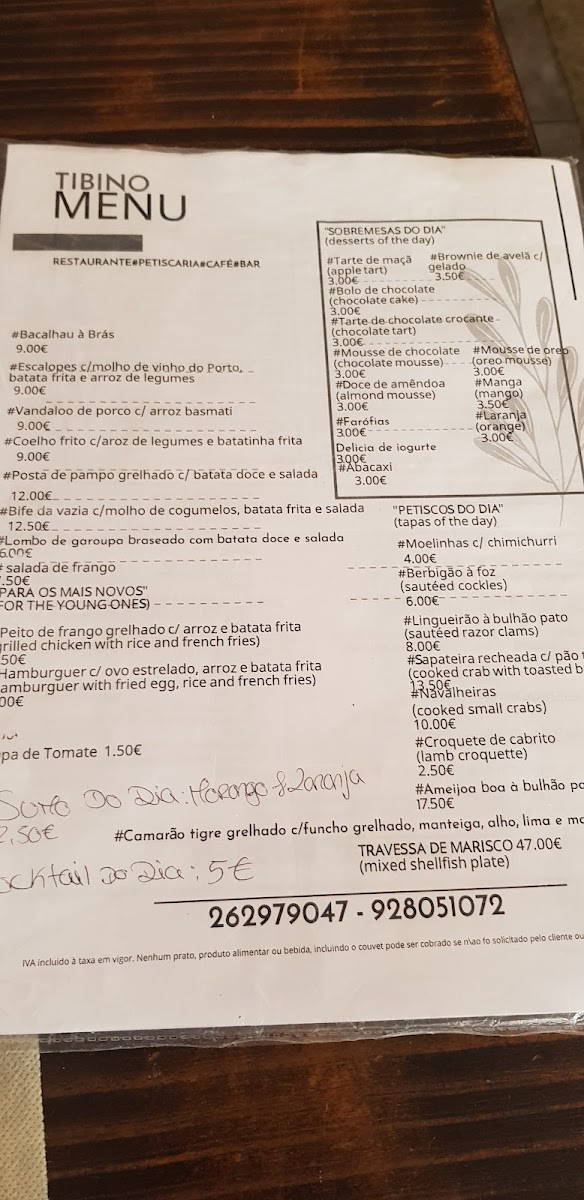 TIBINO
MENU
RESTAURANTE#PETISCARIA#CAFÉ#BAR
#Bacalhau à Brás
9.00€
#Escalopes c/molho de vinho do Porto,
batata frita e arroz de legumes
9.00€
#Vandaloo de porco c/ arroz basmati
9.00€
#Coelho frito c/aroz de legumes e batatinha frita
9.00€
#Posta de pampo grelhado c/ batata doce e salada
12.00€
#Bife da vazia c/molho de cogumelos, batata frita e salada
12.50€
#Lombo de garoupa braseado com batata doce e salada
6.00€
# salada de frango
.50€
PARA OS MAIS NOVOS"
FOR THE YOUNG ONES)
Peito de frango grelhado c/ arroz e batata frita
grilled chicken with rice and french fries)
50€
Hamburguer c/ ovo estrelado, arroz e batata frita
amburguer with fried egg, rice and french fries)
00€
pa de Tomate 1.50€
Sumo Do Dia: Morango & Laranja
2,50€
ocktail Do Dia: 5€
"SOBREMESAS DO DIA"
(desserts of the day)
#Tarte de maçã
(apple tart)
3.00€
#Brownie de avelã c/
gelado
3.50€
#Bolo de chocolate
(chocolate cake)
3.00€
#Tarte de chocolate crocante
(chocolate tart)
3.00€
#Mousse de chocolate
(chocolate mousse)
3.00€
#Mousse de oreo
(oreo mousse)
3.00€
#Doce de amêndoa
(almond mousse)
3.00€
#Manga
(mango)
3.50€
#Farófias
3.00€
#Laranja
(orange)
3.00€
Delicia de iogurte
3.00€
#Abacaxi
3.00€
"PETISCOS DO DIA"
(tapas of the day)
#Moelinhas c/ chimichurri
4.00€
#Berbigão à foz
(sautéed cockles)
6.00€
#Lingueirão à bulhão pato
(sautéed razor clams)
8.00€
#Sapateira recheada c/ pão t
(cooked crab with toasted b
13.50€
#Navalheiras
(cooked small crabs)
10.00€
#Croquete de cabrito
(lamb croquette)
2.50€
#Ameijoa boa à bulhão pa
17.50€
#Camarão tigre grelhado c/funcho grelhado, manteiga, alho, lima e
TRAVESSA DE MARISCO 47.00€
(mixed shellfish plate)
262979047 - 928051072
IVA incluido à taxa em vigor. Nenhum prato, produto alimentar ou bebida, incluindo o couvet pode ser cobrado se nao fo solicitado pelo cliente ou